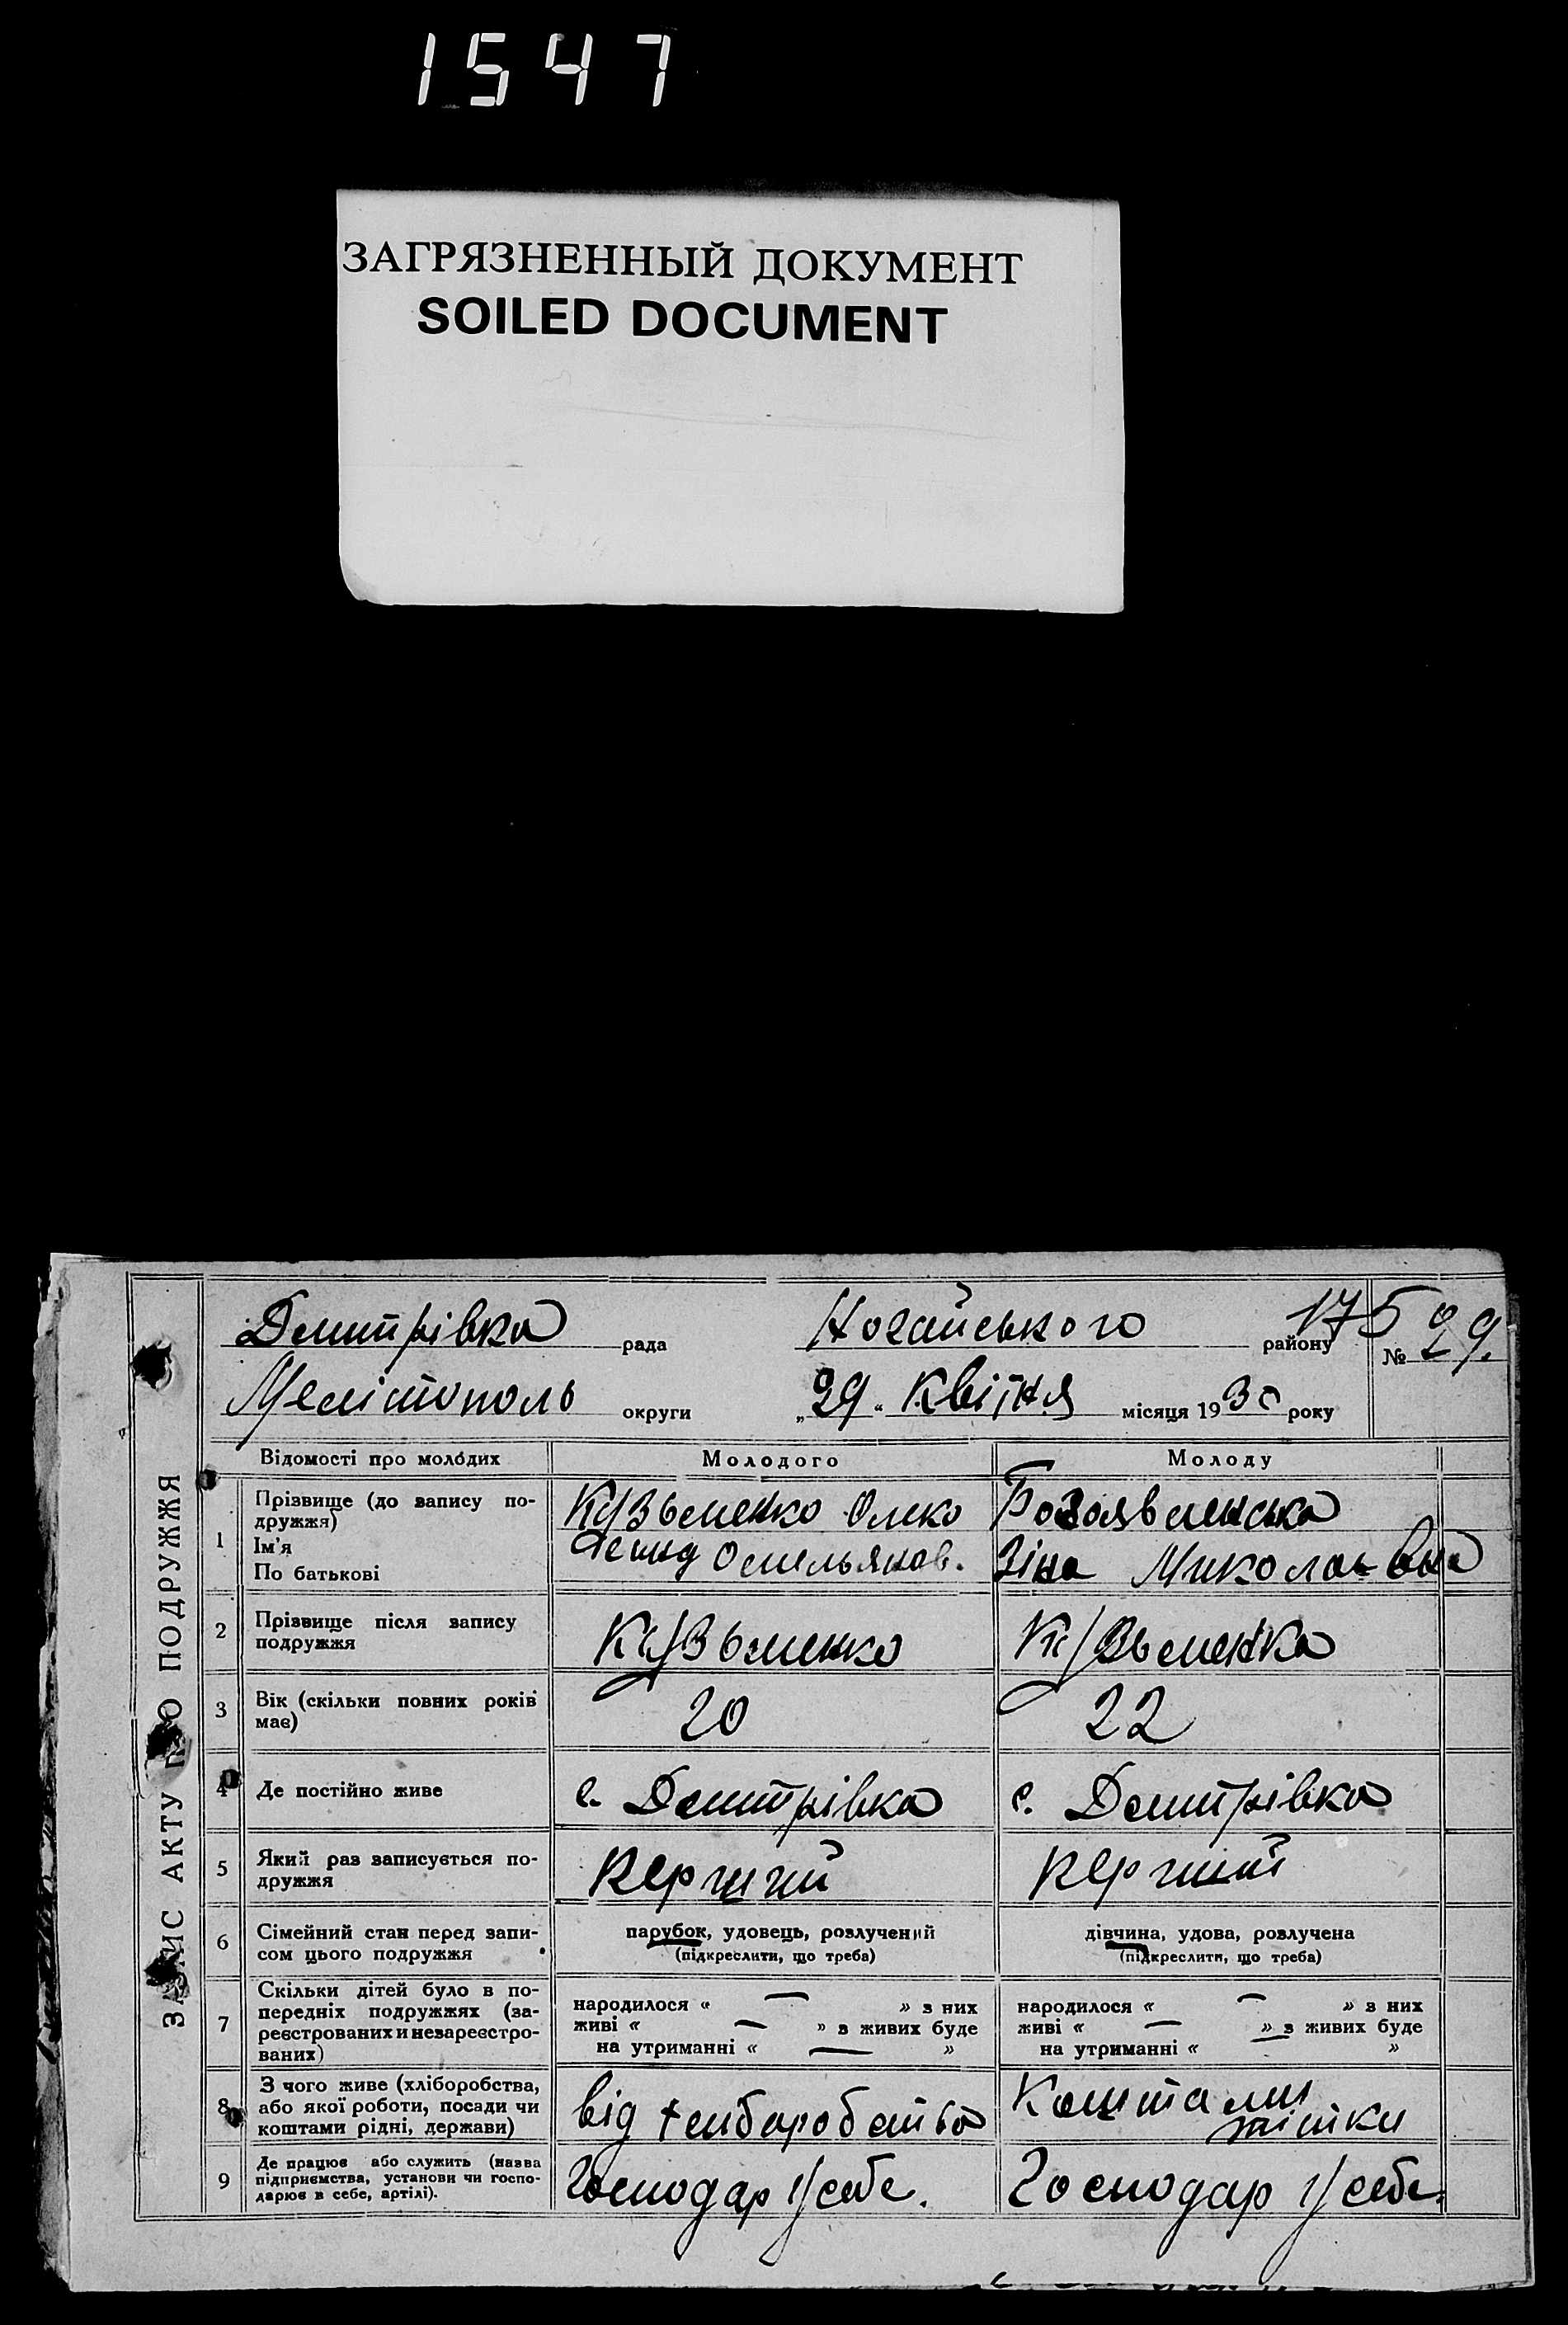 1547
ЗАГРЯЗНЕННЫЙ ДОКУМЕНТ
SOILED DOCUMENT
ЗАПИС АКТУ ПРО ПОДРУЖЖЯ
Дмитрівка рада Ногайського району 175 № 29.
Мелітополь округи „29“ Квітня місяця 1930 року
Відомості про молодих Молодого Молоду
1 Прізвище (до запису по-
дружжя)
Ім'я
По батькові
Кузьменко Олек
Омельянов.
Зіна Миколаевна
2 Прізвище після запису
подружжя
Кузьменко
Кузьменка
3 Вік (скільки повних років
має)
20
22
4 Де постійно живе
с. Дмитрівка
с. Дмитрівка
5 Який раз записується по-
дружжя
перший
перший
6 Сімейний стан перед запи-
сом цього подружжя
парубок, удовець, розлучений
(підкреслити, що треба)
дівчина, удова, розлучена
(підкреслити, що треба)
7 Скільки дітей було в по-
передніх подружжях (за-
реєстрованих и незареєстро-
ваних)
народилося « — » з них
живі « — » з живих буде
на утриманні « — »
народилося « — » з них
живі « — » з живих буде
на утриманні « »
8 З чого живе (хліборобства,
або якої роботи, посади чи
коштами рідні, держави)
від хлиборобства
Коштами
9 Де працює або служить (назва
підприємства, установи чи госпо-
дарює в себе, артілі).
Господар у себе.
Господар у себе.